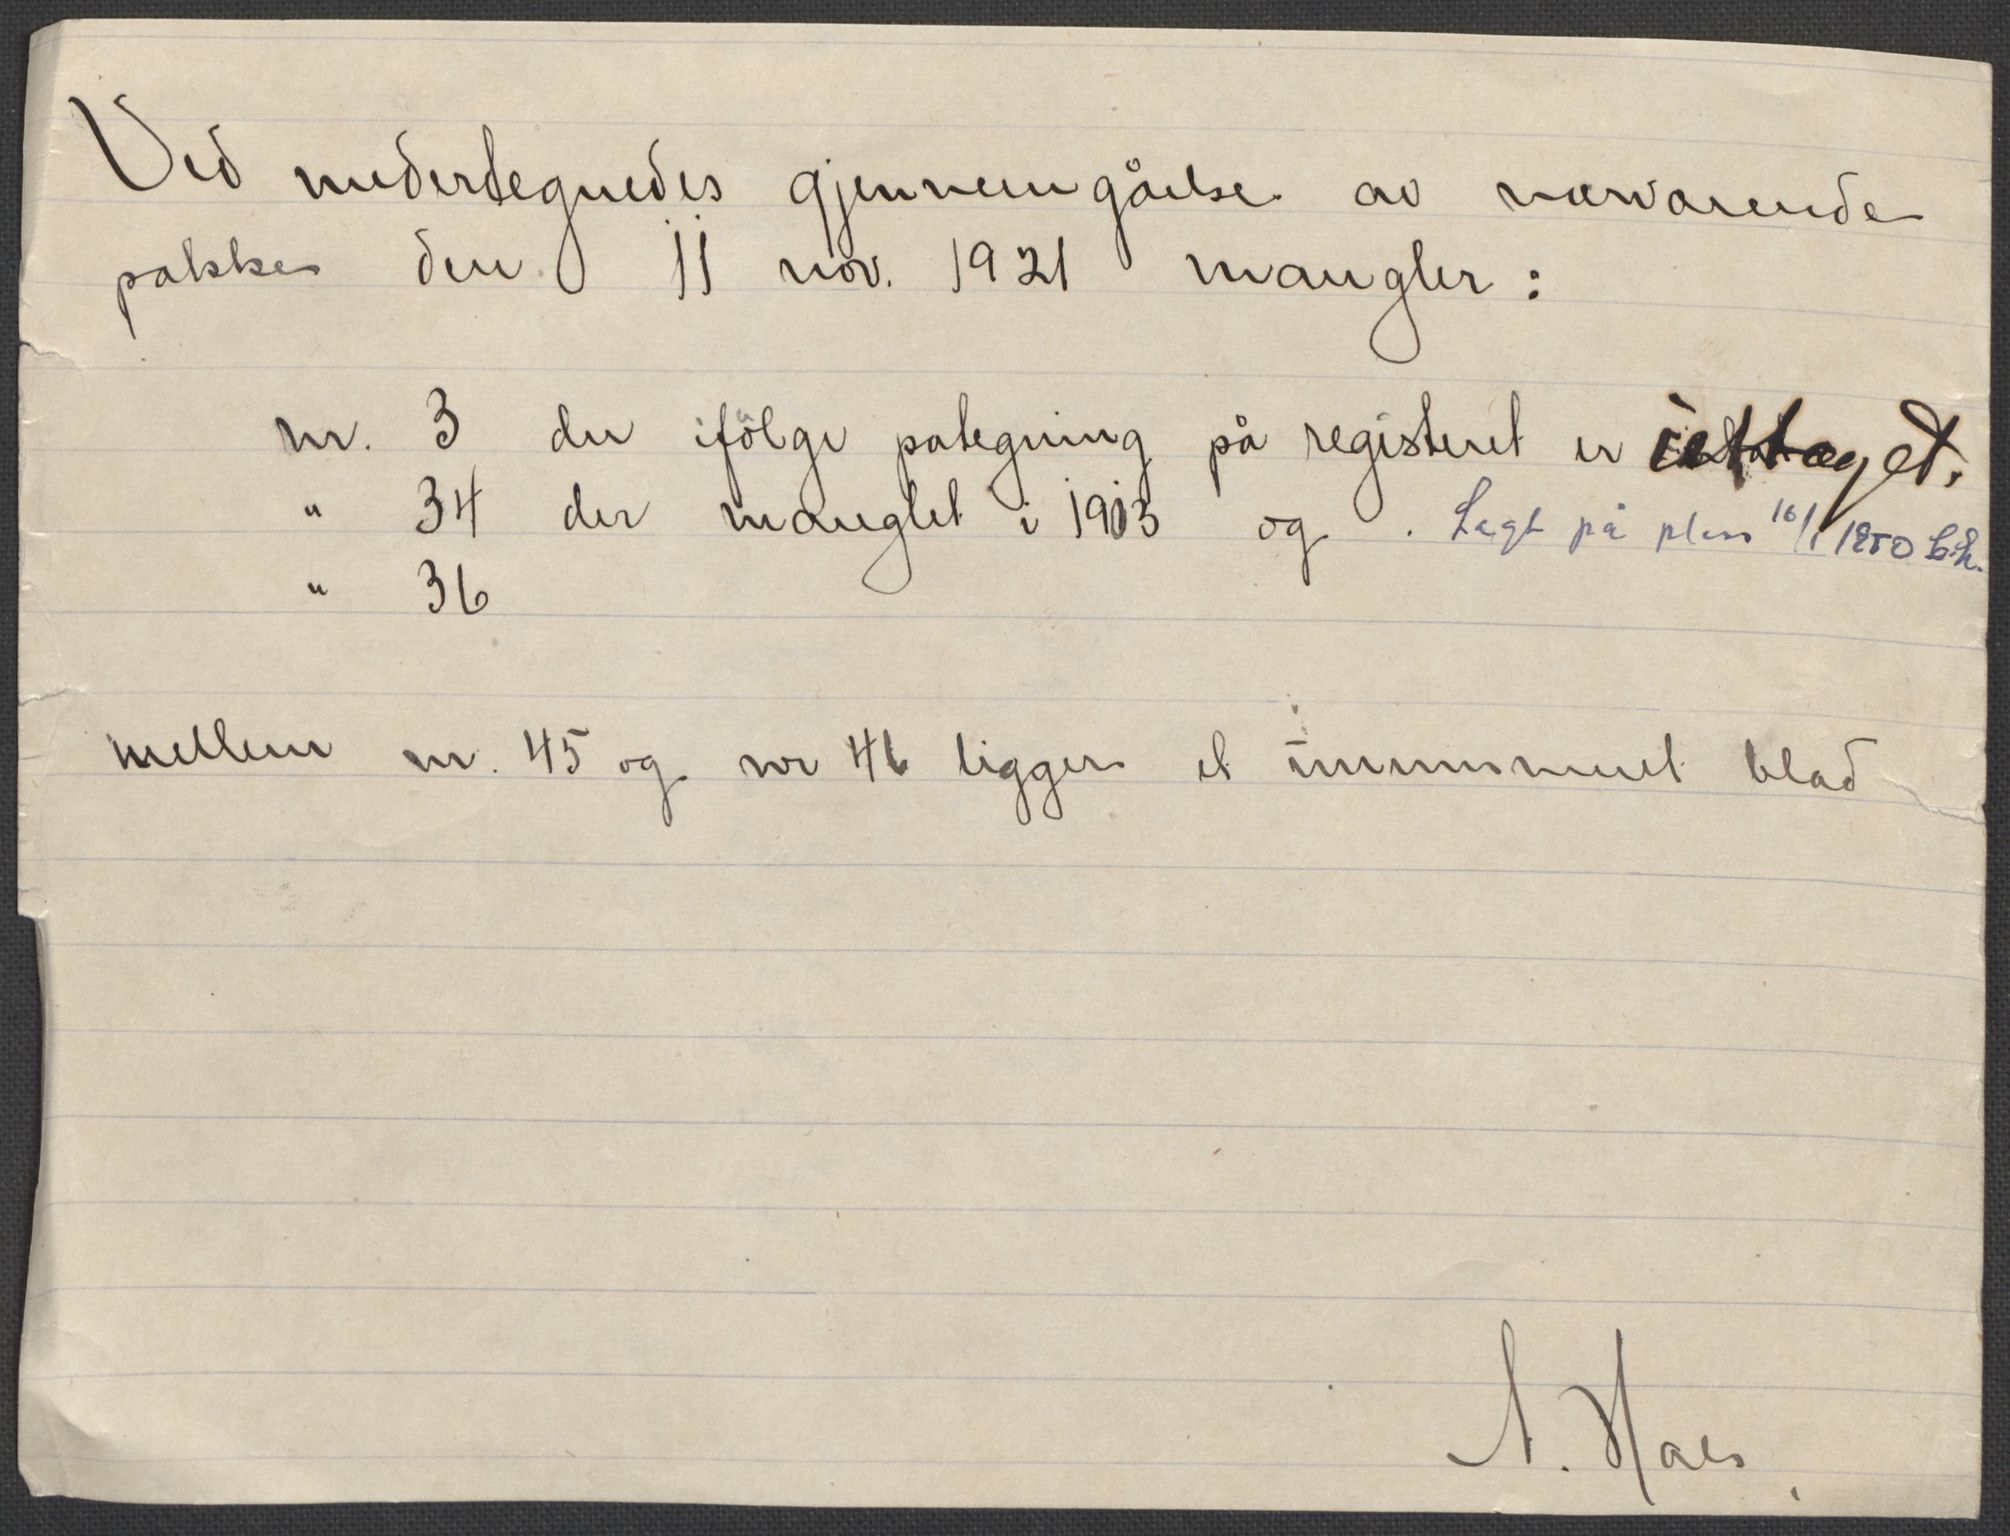 Ved undertegnedes gjennemgåelse av nærværende
pakke den 11 nov. 1921 mangler:
nr. 3 der ifölge pategning på registeret er
" 34 der manglet i 1913 og . Lagt på plass 16/1 1950
" 36
mellem nr. 45 og nr 46 ligger et unummeret blad
A. Næs.